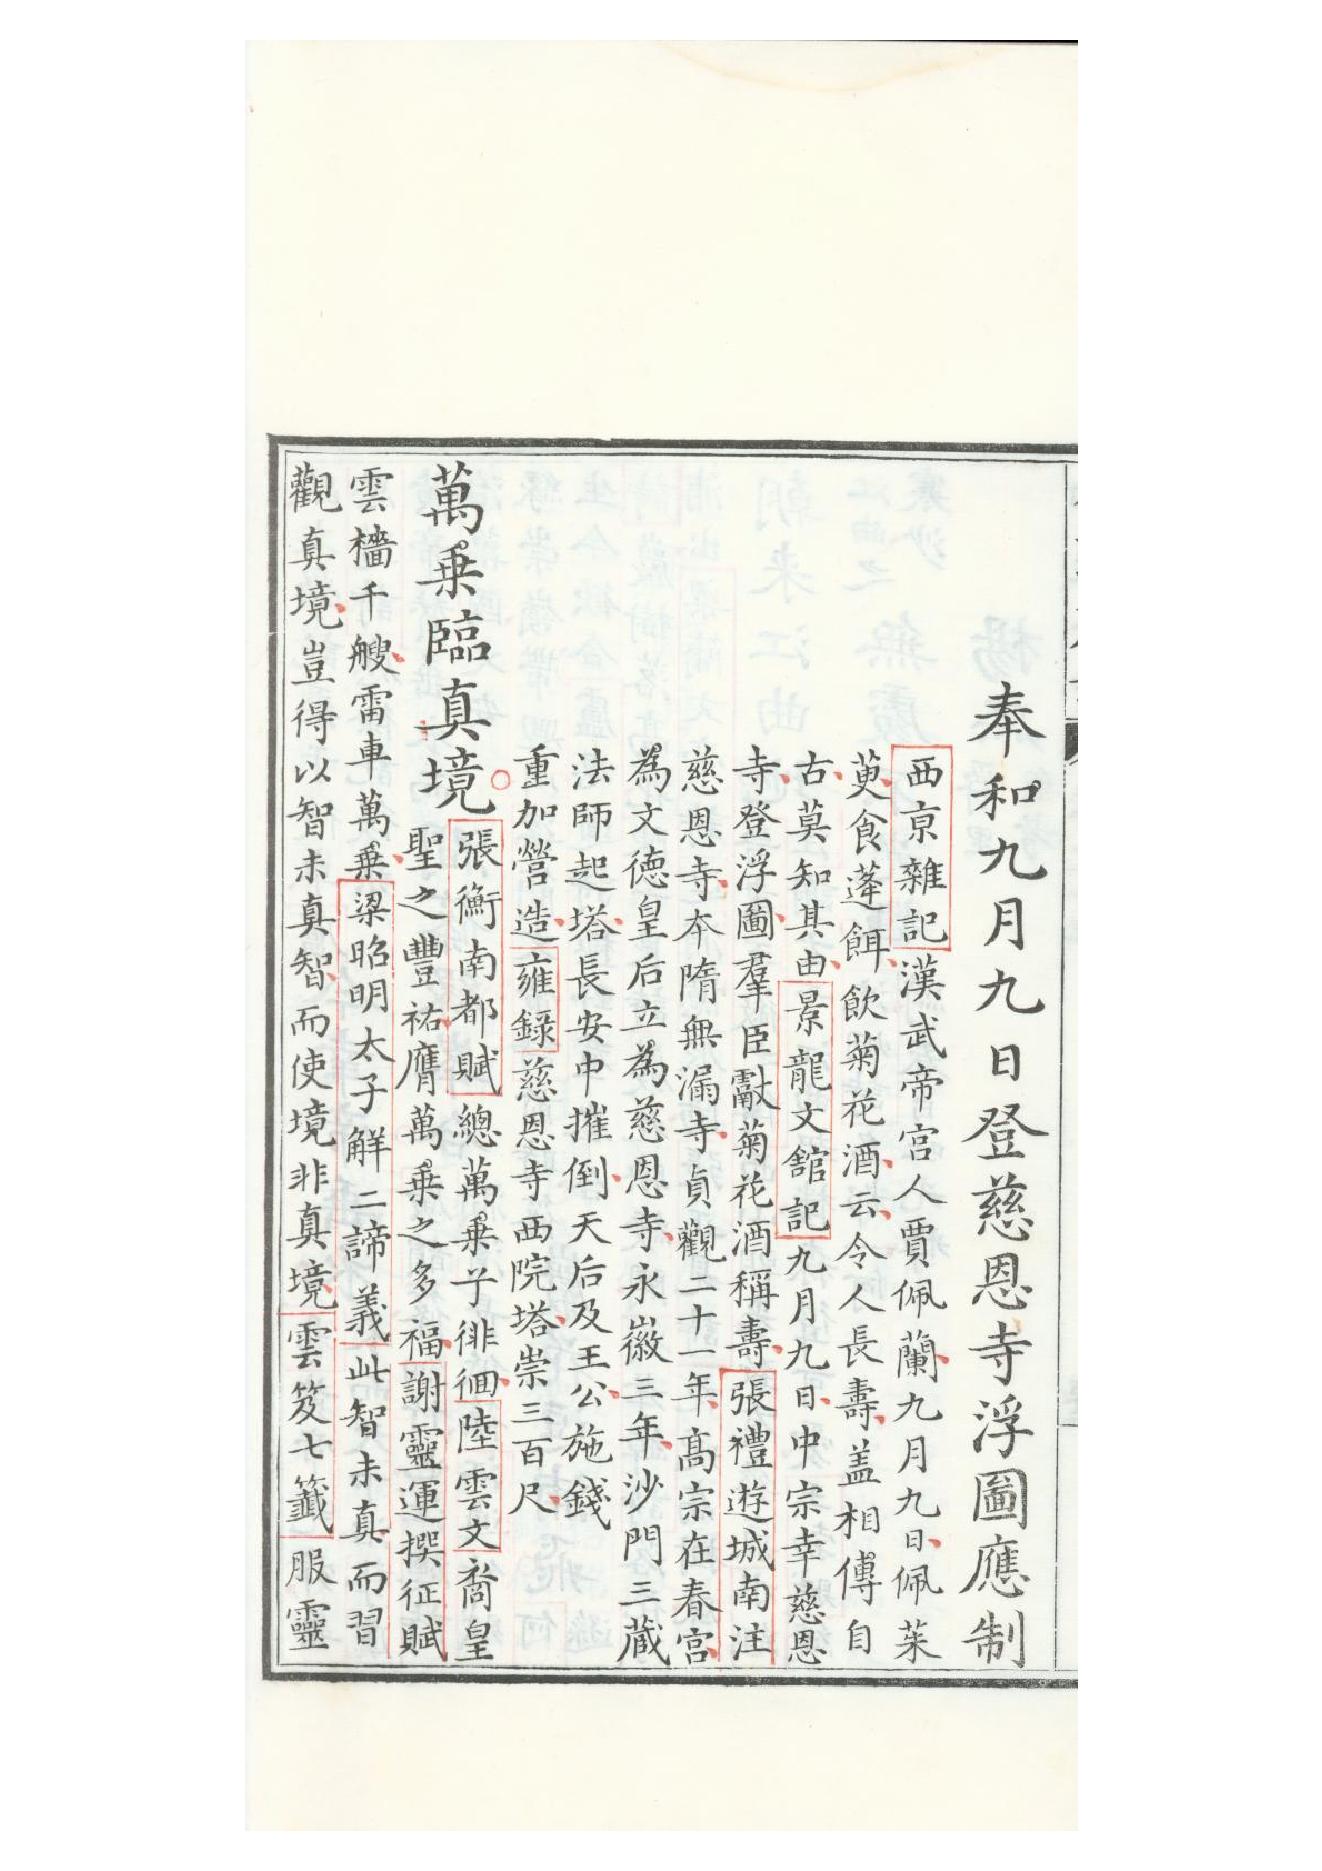 奉和九月九日登慈恩寺浮圖應制
西京雜記漢武帝宫人賈佩蘭九月九日佩茱
萸食蓬餌飲菊花酒云令人長壽盖相傳自
古莫知其由景龍文舘記九月九日中宗幸慈恩
寺登浮圖羣臣獻菊花酒稱壽張禮遊城南注
慈恩寺本隋無漏寺貞觀二十一年髙宗在春宫
為文德皇后立為慈恩寺永徽三年沙門三藏
法師起塔長安中摧倒天后及王公施錢
重加營造雍録慈恩寺西院塔崇三百尺
萬乗臨真境
張衡南都賦總萬乗兮徘徊陸雲文裔皇
聖之豐祐膺萬乗之多福謝靈運撰征賦
雲檣千艘雷車萬乗梁昭明太子解二諦義此智未真而習
觀真境豈得以智未真智而使境非真境雲笈七籤服靈